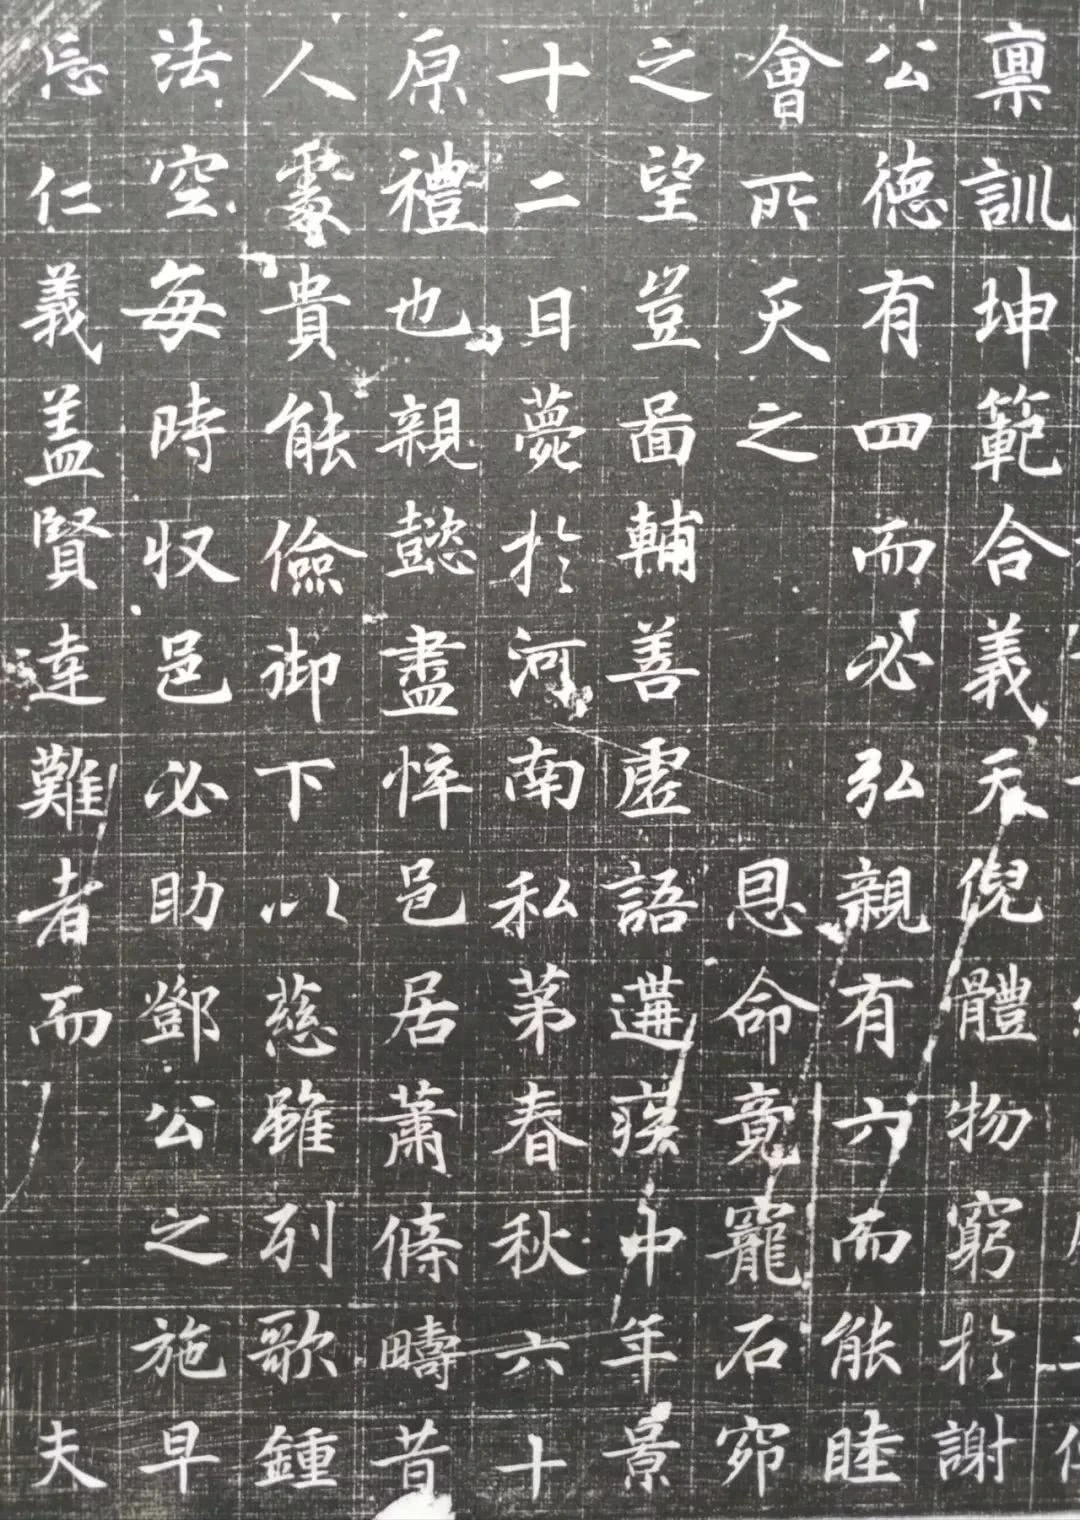 稟訓坤範合義天倪體物窮於謝
公德有四而必弘親有六而能睦
會所天之恩命竟寵石窌
之望豈啚輔善虛語遘瘼中年景
十二日薨於河南私苐春秋六十
原禮也親懿盡悴邑居蕭條疇昔
人處貴能儉御下以慈雖列歌鍾
法空每時収邑必助鄧公之施早
忘仁義盖賢達難者而夫